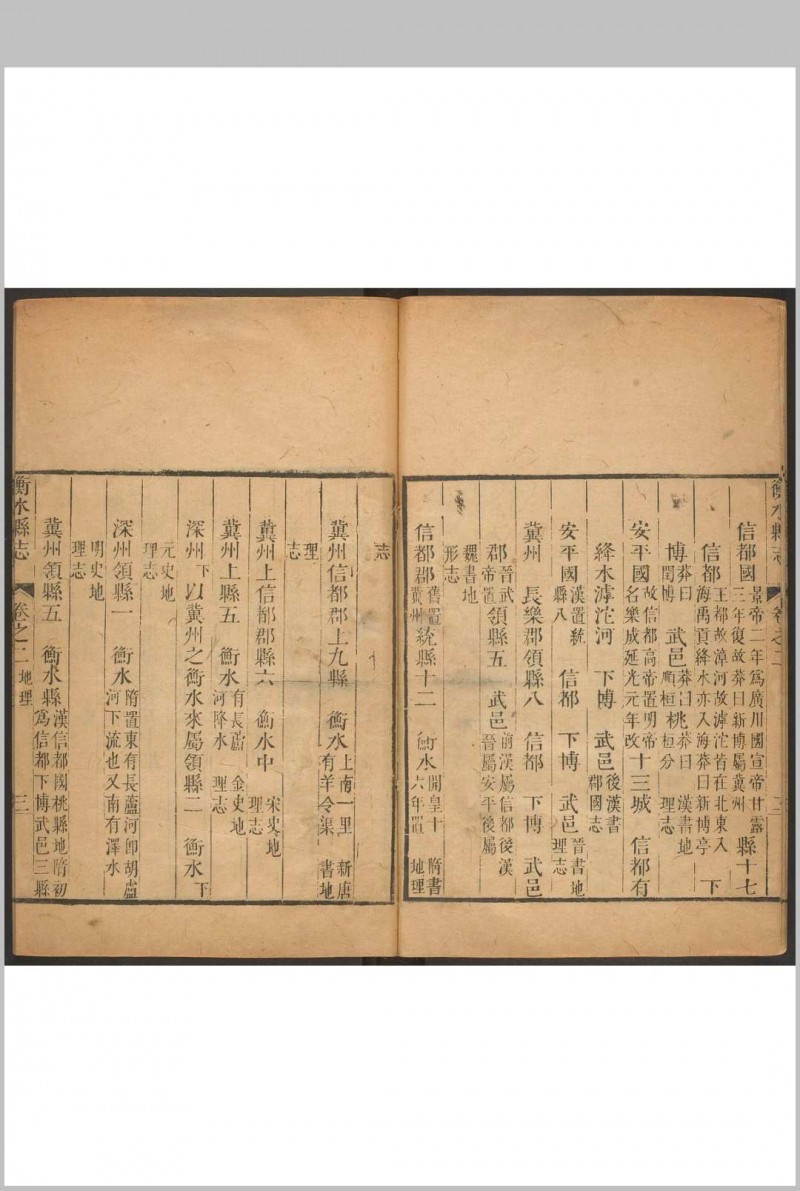 衡水縣志　卷之二　三
信都國景帝二年爲廣川國宣帝甘露三年復故莽曰新博屬冀州縣十七
信都王都故漳河故滹沱皆在北東入海禹貢絳水亦入海莽曰新博亭　下
博莽曰閏博　武邑莽曰順桓　桃莽曰桓分　漢書地理志
安平國故信都高帝置明帝名樂成延光元年改十三城　信都有
絳水滹沱河　下博　武邑後漢書郡國志
安平國漢置統縣八　信都　下博　武邑晉書地理志
冀州　長樂郡領縣八　信都　下博　武邑
郡晉武帝置領縣五　武邑前漢屬信都後漢晉屬安平後屬
魏書地形志
信都郡舊置冀州統縣十二　衡水開皇十六年置　隋書地理
志
冀州信都郡上九縣　衡水上南一里有羊令渠　新唐書地
理志
冀州上信都郡縣六　衡水中　宋史地理志
冀州上縣五　衡水有長蘆河降水　金史地理志
深州下以冀州之衡水來屬領縣二　衡水下
元史地理志
深州領縣一　衡水隋置東有長蘆河卽胡盧河下流也又南有澤水
明史地理志
冀州領縣五　衡水縣漢信都國桃縣地隋初爲信都下博武邑三縣
衡水縣志　卷之二地理　三